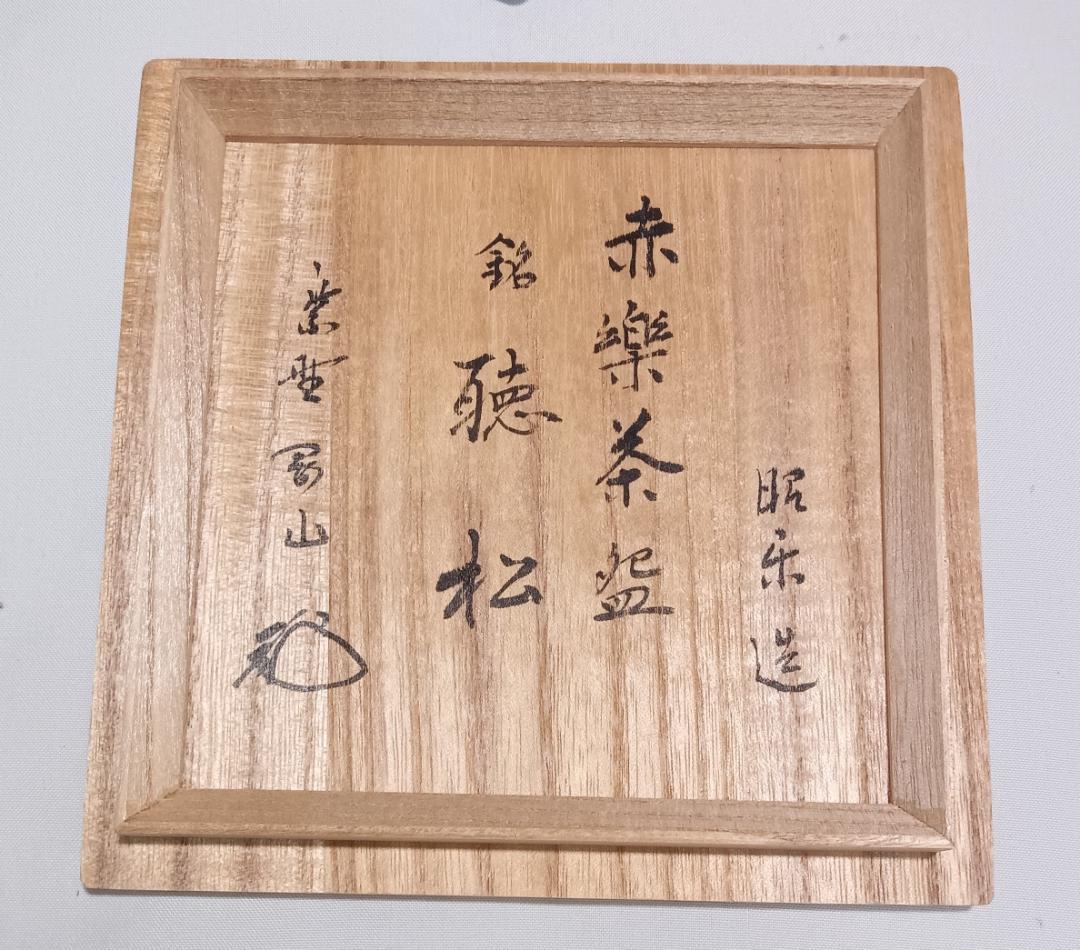 昭楽造
赤樂茶盌
銘 聴松
紫野 寛山